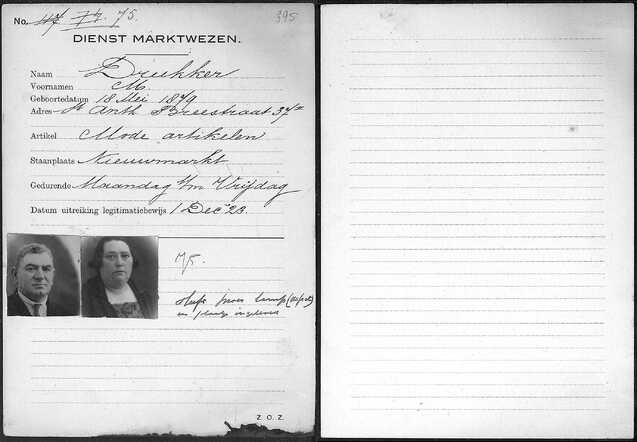 No. 47 77. 75. 395
DIENST MARKTWEZEN.
Naam Drukker
Voornamen M.
Geboortedatum 18 Mei 1879
Adres St Anth Breestraat 37
Artikel Mode artikelen
Staanplaats Nieuwmarkt
Gedurende Maandag t/m Vrijdag
Datum uitreiking legitimatiebewijs 1 Dec 23.
75.
Heeft
en
Z.O.Z.